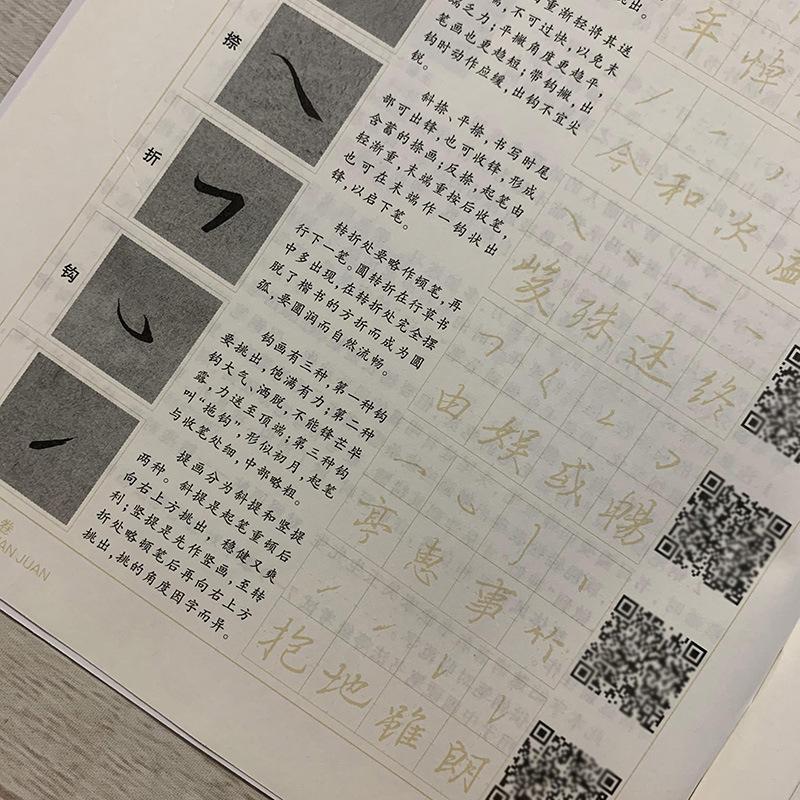 捺
折
钩
重渐轻将其送
端,不可过快,以免末
端乏力;平撇角度更趋平,
笔画也更趋短;带钩撇,出
钩时动作应缓,出钩不宜尖
锐。
斜捺、平捺,书写时尾
部可出锋,也可收锋,形成
含蓄的捺画;反捺,起笔由
轻渐重,末端重按后收笔,
也可在末端作一钩状出
锋,以启下笔。
转折处要略作顿笔,再
行下一笔。圆转折在行草书
中多出现,在转折处完全摆
脱了楷书的方折而成为圆
弧,要圆润而自然流畅。
钩画有三种,第一种钩
要挑出,饱满有力;第二种
钩大气、洒脱,不能锋芒毕
露,力送至顶端;第三种钩
叫“拖钩”,形似初月,起笔
与收笔处细,中部略粗。
提画分为斜提和竖提
两种。斜提是起笔重顿后
向右上方挑出,稳健又爽
利;竖提是先作竖画,至转
折处略顿笔后再向右上方
挑出,挑的角度因字而异。
年悼
令和次
峻殊終
由娱或暢
亭惠事竹
抱地雖朗
卷
JUAN